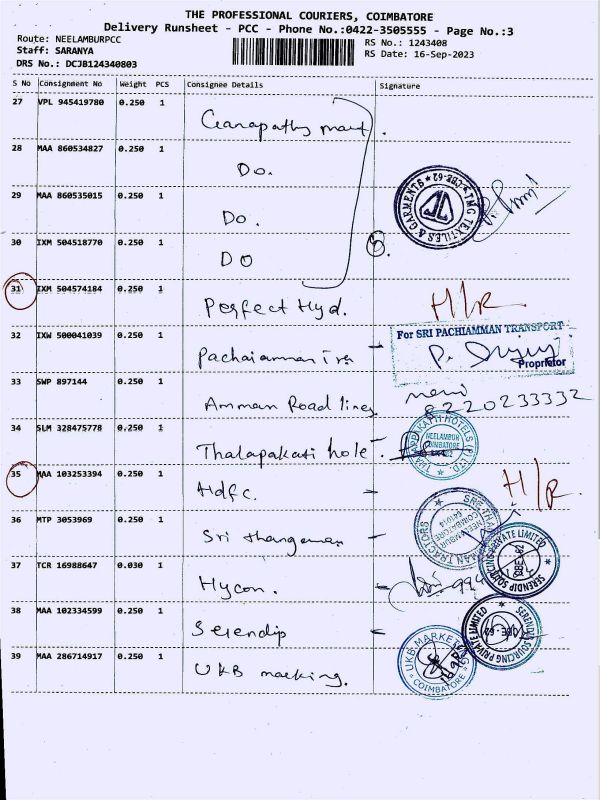 THE PROFESSIONAL COURIERS, COIMBATORE
Delivery Runsheet - PCC - Phone No.:0422-3505555 - Page No.:3
Route: NEELAMBURPCC
RS No.: 1243408
Staff: SARANYA
RS Date: 16-Sep-2023
DRS No.: DCJB124340803
S No Consignment No Weight PCS Consignee Details Signature
27 VPL 945419780 0.250 1
28 MAA 860534827 0.250 1 Do.
29 MAA 860535015 0.250 1 Do.
TMG TEXTILES & GARMENTS CBE-62
30 IXM 504518770 0.250 1 DO
31 IXM 504574184 0.250 1 Perfect Hyd. H/R
32 IXW 500041039 0.250 1
For SRI PACHIAMMAN TRANSPORT
Proprietor
33 SWP 897144 0.250 1 Amman Road lines
8220233332
34 SLM 328475778 0.250 1 Thalapakati hole
NEELAMBUR
COIMBATORE
35 MAA 103253394 0.250 1 Hdfc. H/R.
36 MTP 3053969 0.250 1
SERENDIP SOURCING PRIVATE LIMITED
37 TCR 16988647 0.030 1 Hycon.
38 MAA 102334599 0.250 1 Serendip
SERENDIP SOURCING PRIVATE LIMITED
39 MAA 286714917 0.250 1 UKB marking.
UKB MARKETING
COIMBATORE